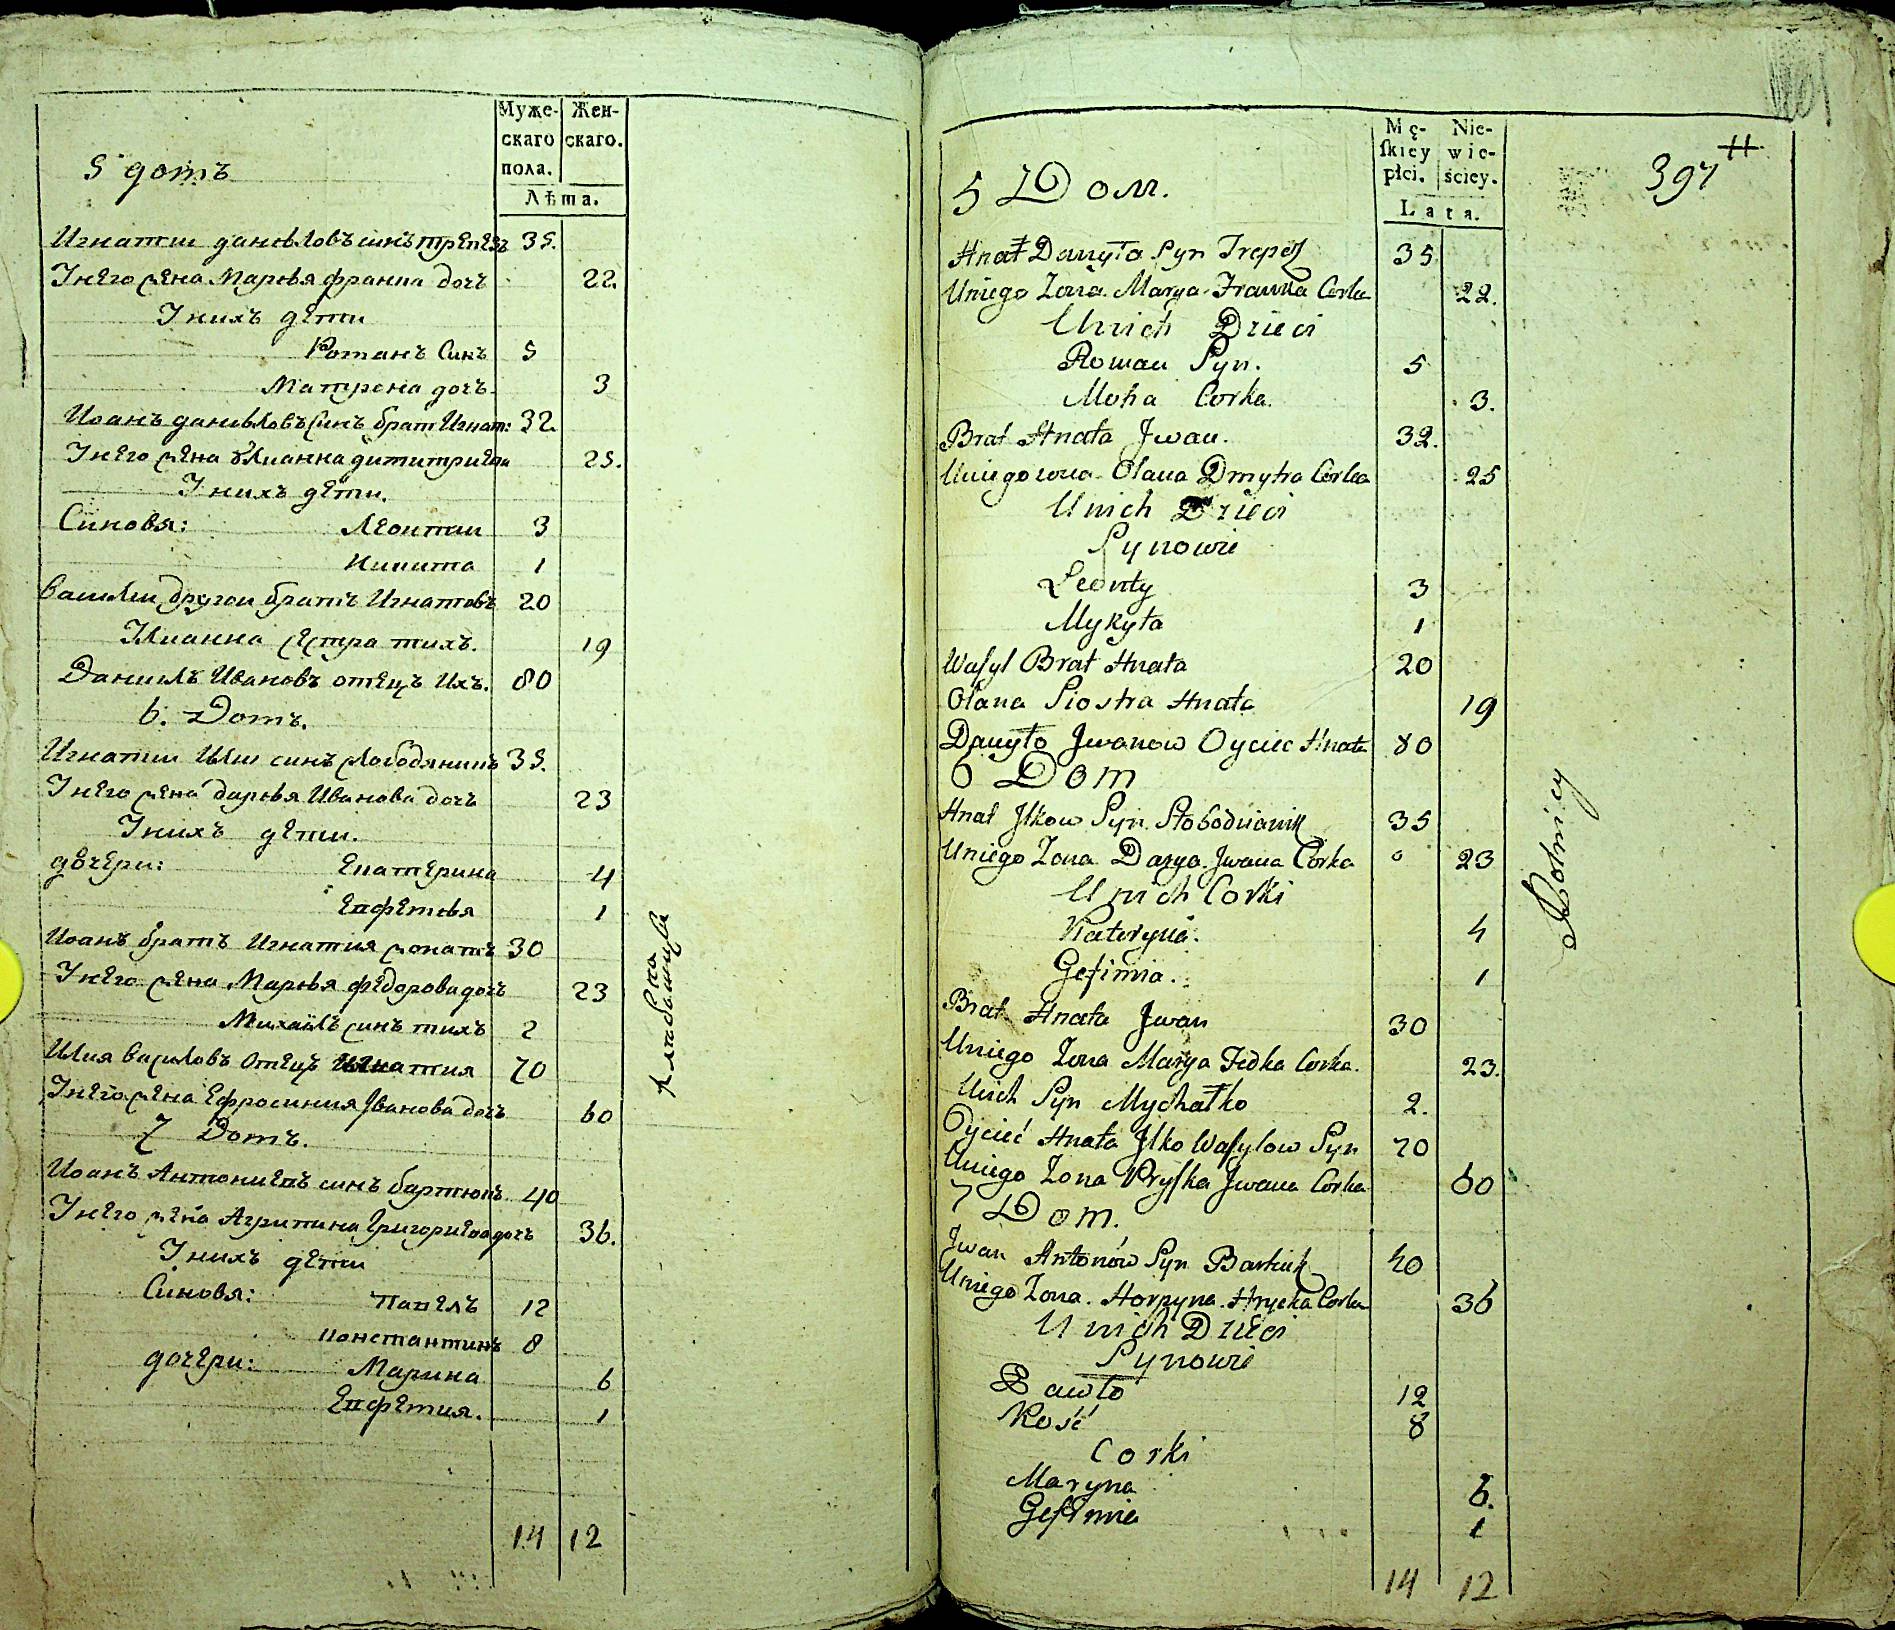 Муже-
скаго
пола.
Жен-
скаго.
Лѣта.
5 домъ
Игнатии даниловъ синъ трепезъ 35.
У него жена Марья франка дочъ 22.
У нихъ дети
Романъ Синъ 5
Матрона дочъ 3
Иоанъ даниловъ Синъ брат Игнат: 32.
У него жена Улианна димитриева 25.
У нихъ дети.
Синовя: Леонтии 3
Никита 1
Василии другои братъ Игнатовъ 20
Улианна сестра тихъ. 19
Даниилъ Ивановъ отецъ ихъ. 80
6. Домъ.
Игнатии Илии синъ слободянникъ 35.
У него жена дарья Иванова дочъ 23
У нихъ дети.
дочери: Екатерина 4
Евфемья 1
Иоанъ братъ Игнатия женатъ 30
У него жена Марья федорова дочъ 23
Михаилъ синъ тихъ 2
Илия василовъ отецъ Игнатия 70
У него жена Ефросиния Іванова дочъ 60
7 Домъ.
Иоанъ Антониевъ синъ бартюкъ 40
У него жена Агрипина григориева дочъ 36.
У нихъ дети
Синовя: Павелъ 12
константинъ 8
дочери: Марина 6
Евфемия. 1
14 12
Mę-
skiey
płci.
Nie-
wie-
ściey.
Lata.
397
5 Dom.
Hnat Danyła Syn Trepez 35
Uniego Zona Marya Franka Corka 22.
Unich Dzieci
Roman Syn. 5
Motra Corka. 3.
Brat Hnata Jwan. 32.
Uniego zona Olana Dmytra Corka 25
Unich Dzieci
Synowie
Leonty 3
Mykyta 1
Wasyl Brat Hnata 20
Olana Siostra Hnata 19
Danyło Jwanow Oyciec Hnata 80
6 Dom
Hnat Jlkow Syn Słobodnianik 35
Uniego Zona Darya Jwana Corka 23
Unich Corki
Kateryna. 4
Gefimia. 1
Brat Hnata Jwan 30
Uniego Zona Marya Fedka Corka. 23.
Unich Syn Mychałko 2.
Oyciec Hnata Jlko Wasylow Syn 70
Uniego Zona Pryska Jwana Corka 60
7 Dom.
Jwan Antonów Syn Bartiuk 40
Uniego Zona. Horpyna. Hrycka Corka 36
Unich Dzieci
Synowie
Pawło 12
Kość 8
Corki
Maryna 6.
Gefimia 1
14 12
Rolnicy